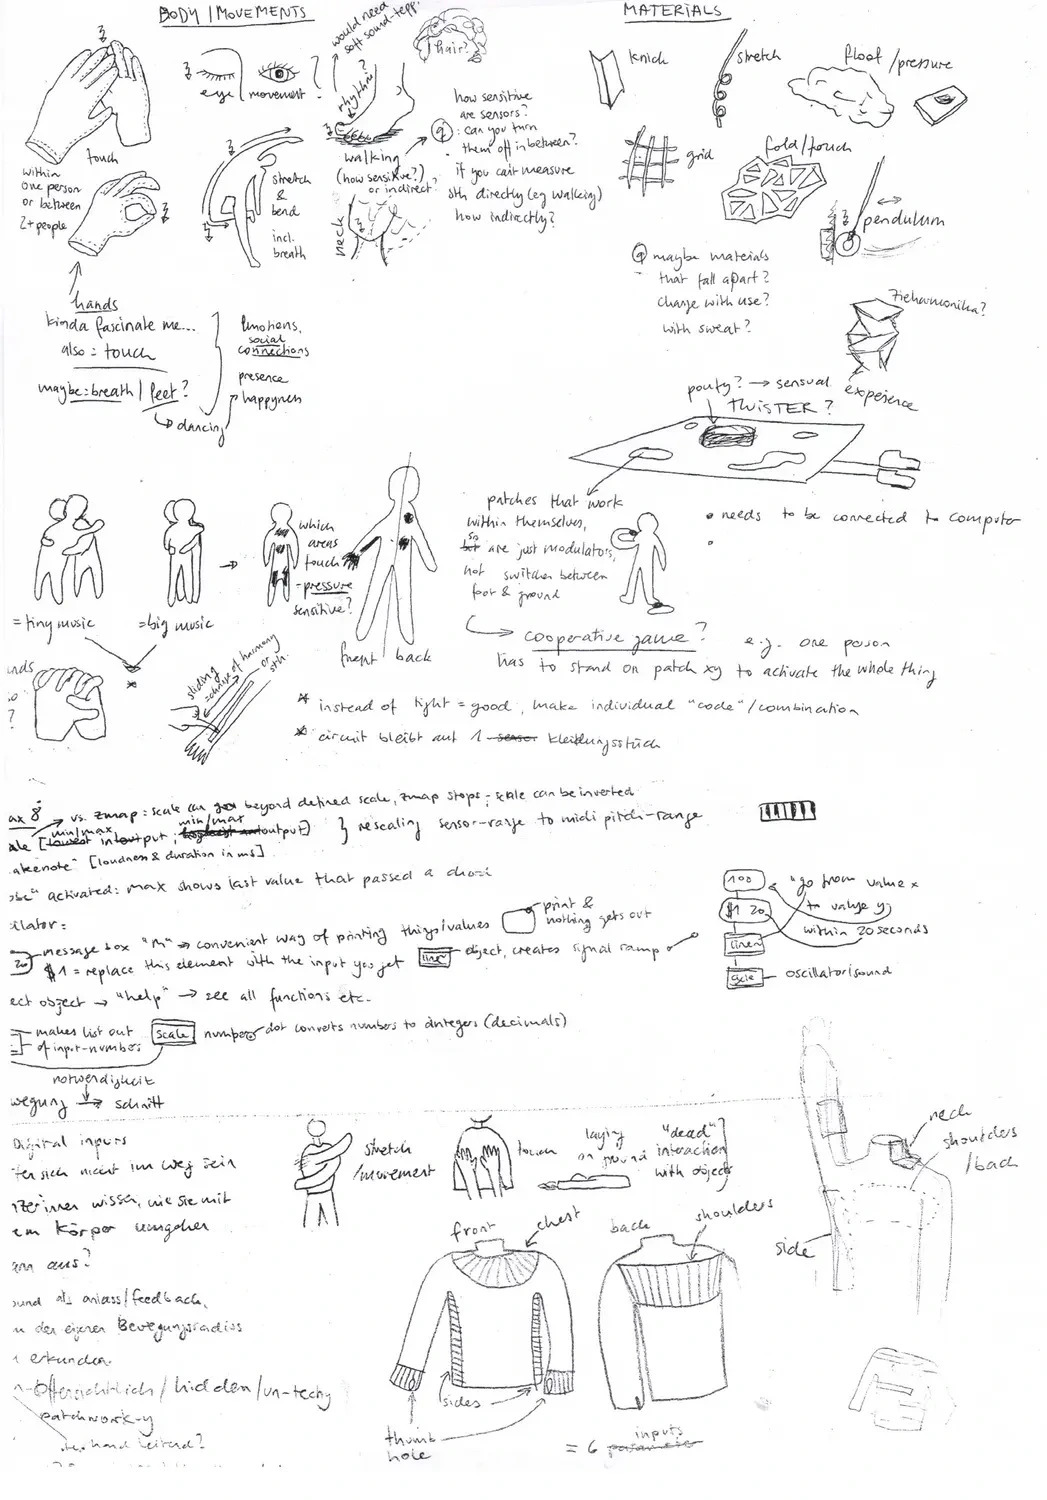 BODY / MOVEMENTS
touch
within
one person
or between
2+ people
eye
movement ?
would need
soft sound-tepp.
rhythm?
hair?
stretch
&
bend
incl.
breath
walking
(how sensitive?)
or indirect?
neck
how sensitive
are sensors?
q: can you turn
them off inbetween?
if you can't measure
sth directly (eg walking)
how indirectly?
hands
kinda fascinate me...
also = touch
maybe: breath / feet?
dancing
Emotions,
social
connections
presence
happyness
MATERIALS
knick
stretch
floof / pressure
grid
fold / touch
pendulum
q maybe materials
that fall apart?
change with use?
with sweat?
Ziehharmonika?
→ sensual experience
TWISTER?
patches that work
within themselves,
so
but are just modulators,
not switches between
foot & ground
• needs to be connected to computer
cooperative game? e.g. one person
has to stand on patch xy to activate the whole thing
= tiny music
= big music
which
areas
touch
- pressure
sensitive?
front back
sliding
= change of harmony
or sth.
* instead of tight = good, make individual "code"/combination
* circuit bleibt auf 1 sensor Kleidungsstück
ax 8
vs. zmap: scale can go beyond defined scale, zmap stops - scale can be inverted
min/max min/max
ale [lowest in/output; output] } rescaling sensor-range to midi pitch-range
akenote" [loudness & duration in ms]
obe" activated: max shows last value that passed a
illator:
message box "M" → convenient way of printing things/values
print &
nothing gets out
$1 = replace this element with the input you get
line object, creates signal ramp
ect object → "help" → see all functions etc.
makes list out
of input-numbers
scale numbers dot converts numbers to integers (decimals)
100
$1 20
line~
cycle
oscillator/sound
"go from value x
to value y
within 20 seconds
notwendigkeit
wegung → schnitt
Digital inputs
ten sich nicht im weg sein
tzerinnen wissen, wie sie mit
em Körper umgehen
ann aus?
ound als anlass/feedback,
n den eigenen Bewegungsradius
erkunden
n-offensichtlich / hidden / un-techy
patchwork-y
stretch
/movement
touch
laying
on ground
"dead"
interaction
with object
front
chest
back
shoulders
sides
thumb
hole
= 6 inputs
neck
shoulders
/back
side